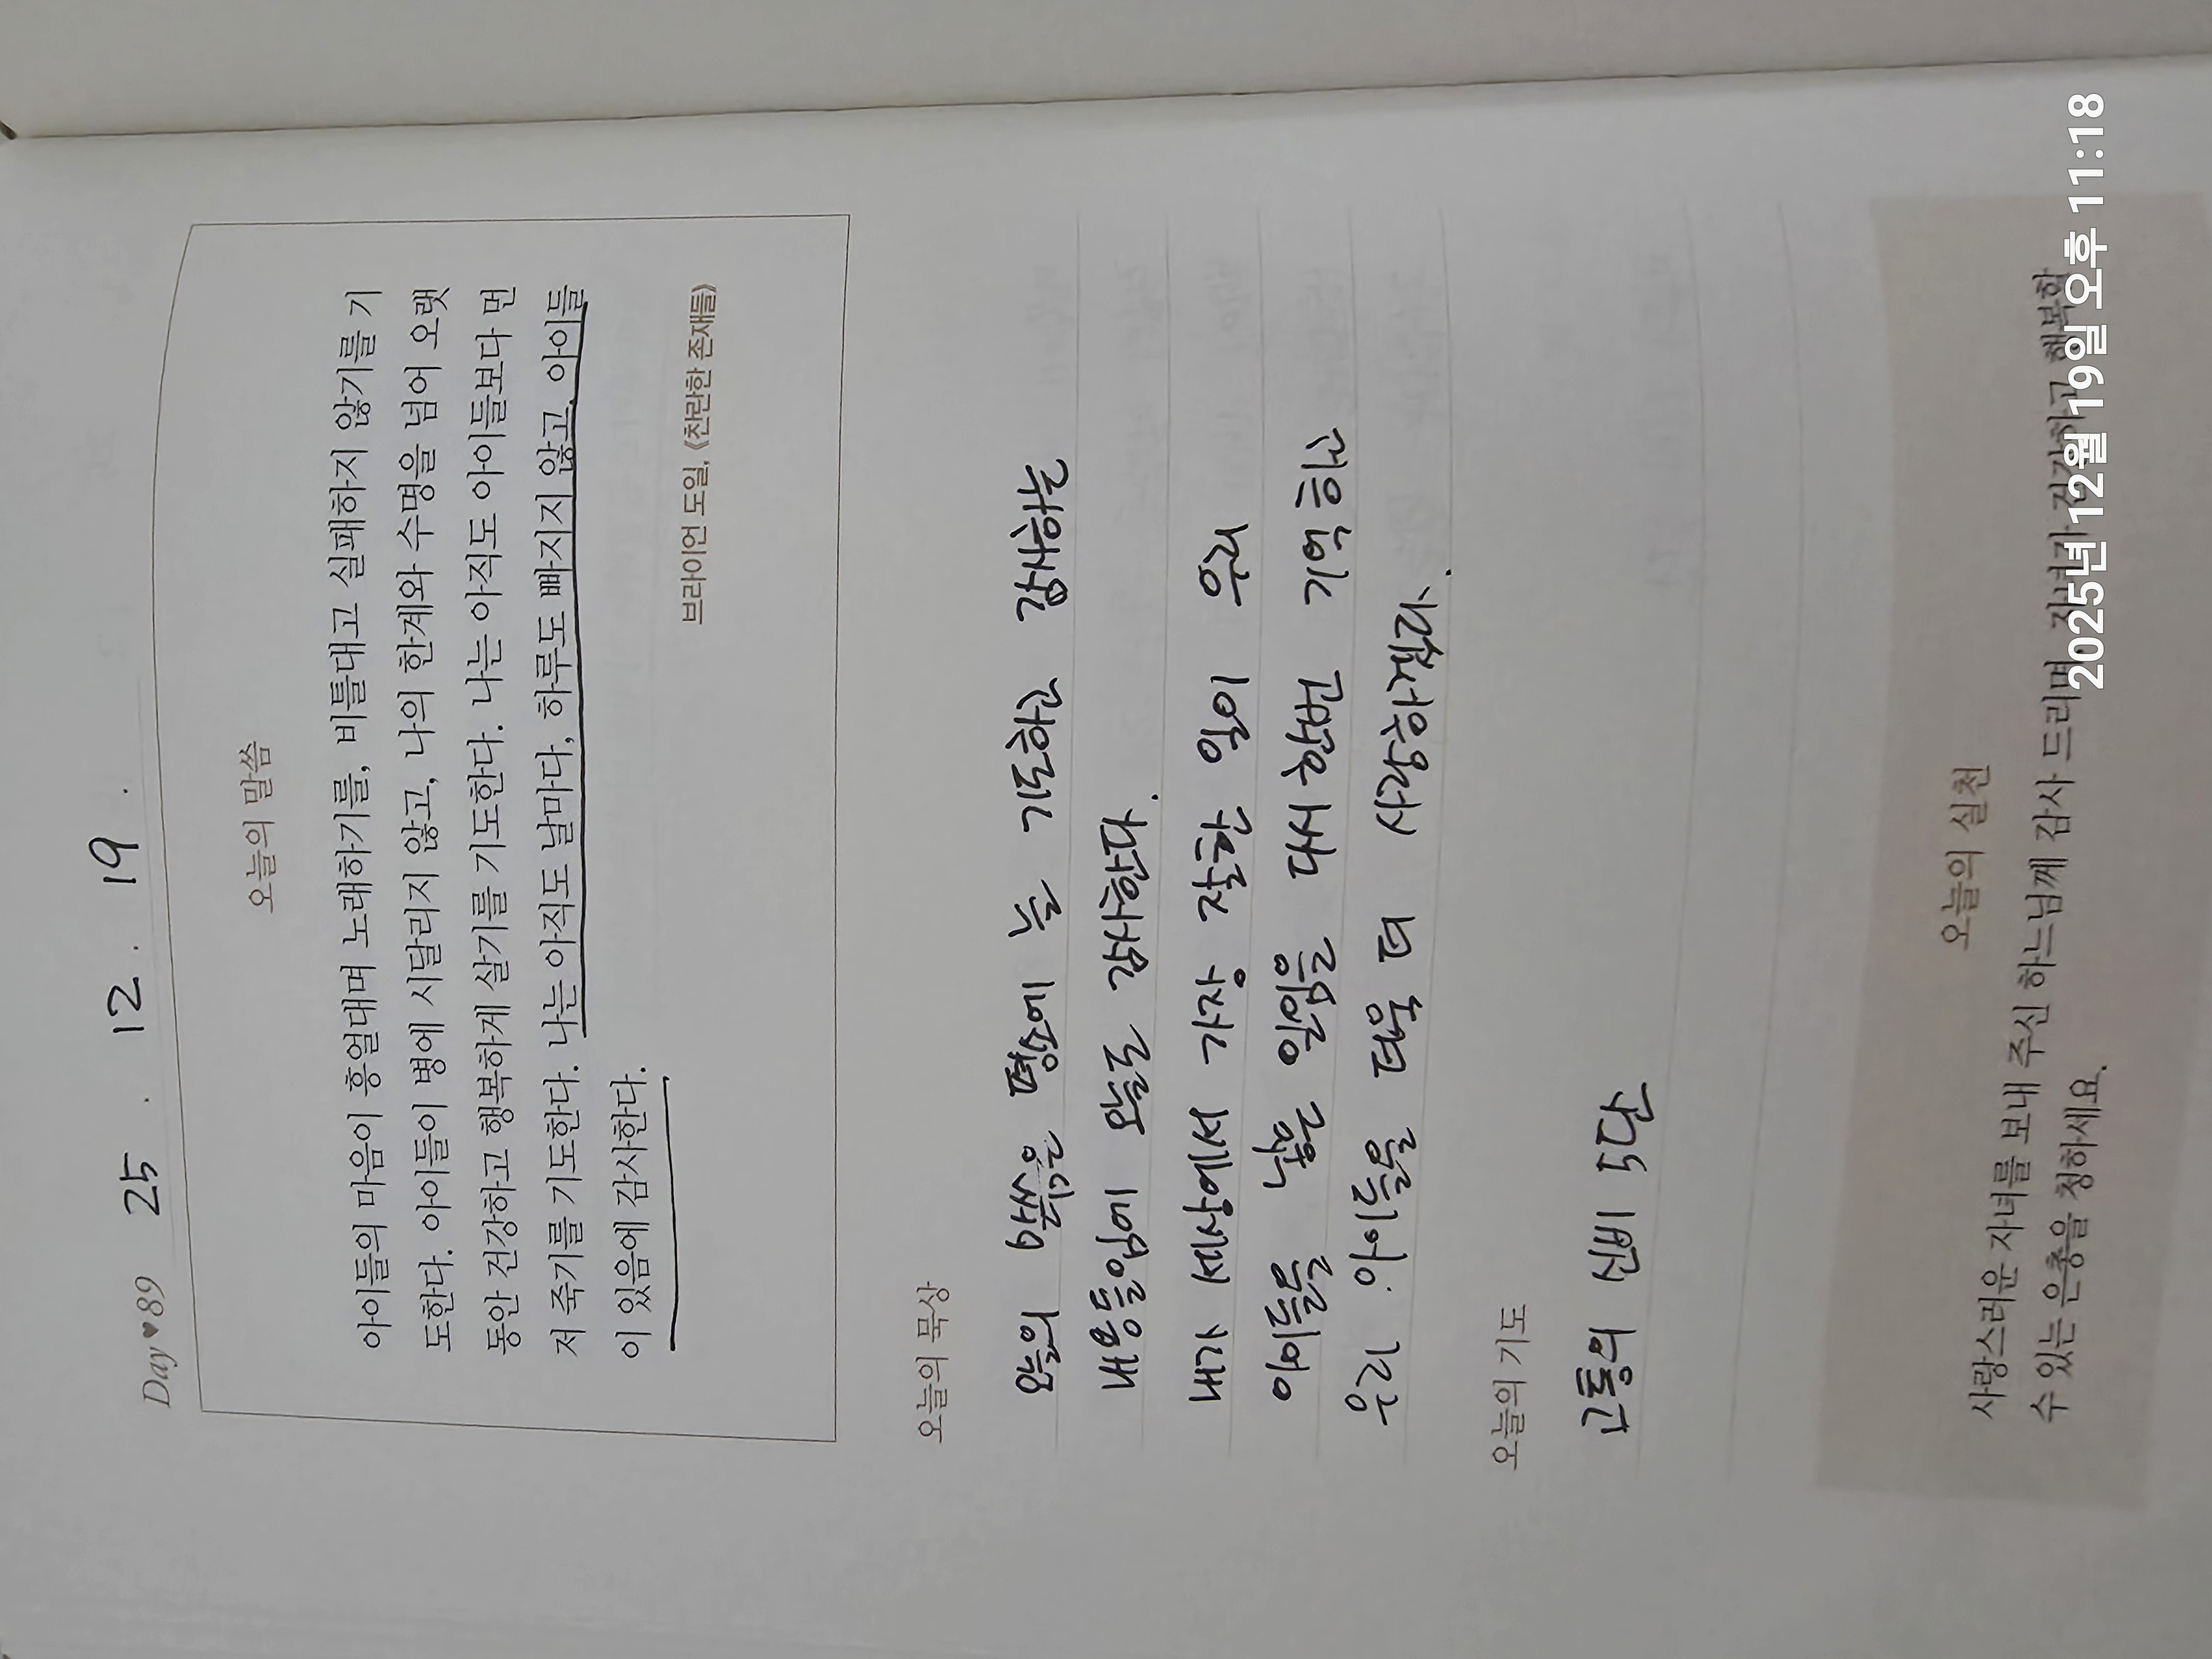 Day♥89 25. 12. 19.
오늘의 말씀
아이들의 마음이 흥얼대며 노래하기를, 비틀대고 실패하지 않기를 기
도한다. 아이들이 병에 시달리지 않고, 나의 한계와 수명을 넘어 오랫
동안 건강하고 행복하게 살기를 기도한다. 나는 아직도 아이들보다 먼
저 죽기를 기도한다. 나는 아직도 날마다, 하루도 빠지지 않고, 아이들
이 있음에 감사한다.
브라이언 도일, 《찬란한 존재들》
오늘의 묵상
오늘의 말씀은 평소에 늘 기도하고 감사하는
내용들임에 오늘도 감사한다.
내가 세상에서 가장 잘한 일이 우리
아이들을 낳은 일임을 다시 생각하고 기억하고
우리 아이들을 더욱 더 사랑하자.
오늘의 기도
고통의 신비 5단
오늘의 실천
사랑스러운 자녀를 보내 주신 하느님께 감사 드리며, 자녀가 건강하고 행복할
수 있는 은총을 청하세요.
2025년 12월 19일 오후 11:18